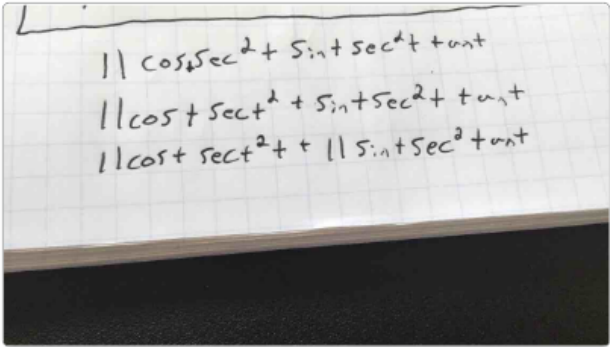 11 cost sec² + sint sec²t tant
11cost sect² + sint sec²t tant
11cost sect²t + 11 sint sec² tant